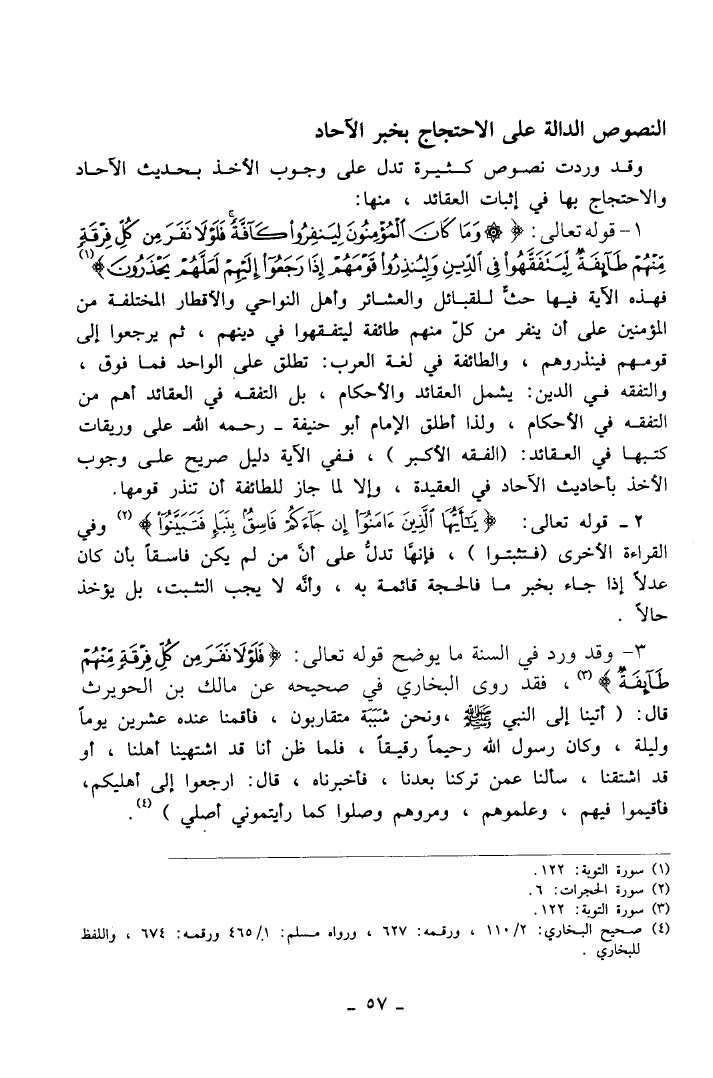 النصوص الدالة على الاحتجاج بخبر الآحاد
وقد وردت نصوص كثيرة تدل على وجوب الأخذ بحديث الآحاد
والاحتجاج بها في إثبات العقائد ، منها:
١- قوله تعالى: ﴿ ۞ وَمَا كَانَ ٱلْمُؤْمِنُونَ لِيَنفِرُوا۟ كَآفَّةً ۚ فَلَوْلَا نَفَرَ مِن كُلِّ فِرْقَةٍ
مِّنْهُمْ طَآئِفَةٌ لِّيَتَفَقَّهُوا۟ فِى ٱلدِّينِ وَلِيُنذِرُوا۟ قَوْمَهُمْ إِذَا رَجَعُوٓا۟ إِلَيْهِمْ لَعَلَّهُمْ يَحْذَرُونَ ﴾(١)
فهذه الآية فيها حثٌّ للقبائل والعشائر وأهل النواحي والأقطار المختلفة من
المؤمنين على أن ينفر من كلّ منهم طائفة ليتفقهوا في دينهم ، ثم يرجعوا إلى
قومهم فينذروهم ، والطائفة في لغة العرب: تطلق على الواحد فما فوق ،
والتفقه في الدين: يشمل العقائد والأحكام ، بل التفقه في العقائد أهم من
التفقه في الأحكام ، ولذا أطلق الإمام أبو حنيفة ـ رحمه اللهـ على وريقات
كتبها في العقائد: (الفقه الأكبر ) ، ففي الآية دليل صريح على وجوب
الأخذ بأحاديث الآحاد في العقيدة ، وإلا لما جاز للطائفة أن تنذر قومها.
٢ ـ قوله تعالى: ﴿ يَٰٓأَيُّهَا ٱلَّذِينَ ءَامَنُوٓا۟ إِن جَآءَكُمْ فَاسِقٌۢ بِنَبَإٍ فَتَبَيَّنُوٓا۟ ﴾ (٢) وفي
القراءة الأخرى (فتثبتوا ) ، فإنهَّا تدلُّ على أنَّ من لم يكن فاسقاً بأن كان
عدلاً إذا جاء بخبر ما فالحجة قائمة به ، وأنَّه لا يجب التثبت، بل يؤخذ
حالاً .
٣- وقد ورد في السنة ما يوضح قوله تعالى: ﴿ فَلَوْلَا نَفَرَ مِن كُلِّ فِرْقَةٍ مِّنْهُمْ
طَآئِفَةٌ ﴾ (٣) ، فقد روى البخاري في صحيحه عن مالك بن الحويرث
قال: ( أتينا إلى النبي ﷺ ،ونحن شَبَبَة متقاربون ، فأقمنا عنده عشرين يوماً
وليلة ، وكان رسول الله رحيماً رقيقاً ، فلما ظن أنا قد اشتهينا أهلنا ، أو
قد اشتقنا ، سألنا عمن تركنا بعدنا ، فأخبرناه ، قال: ارجعوا إلى أهليكم،
فأقيموا فيهم ، وعلموهم ، ومروهم وصلوا كما رأيتموني أصلي ) (٤).
(١) سورة التوبة: ١٢٢ .
(٢) سورة الحجرات: ٦ .
(٣) سورة التوبة: ١٢٢ .
(٤) صحيح البخاري: ١١٠/٢ ، ورقمه: ٦٢٧ ، ورواه مسلم: ٤٦٥/١ ورقمه: ٦٧٤ ، واللفظ
للبخاري .
ـ ٥٧ ـ